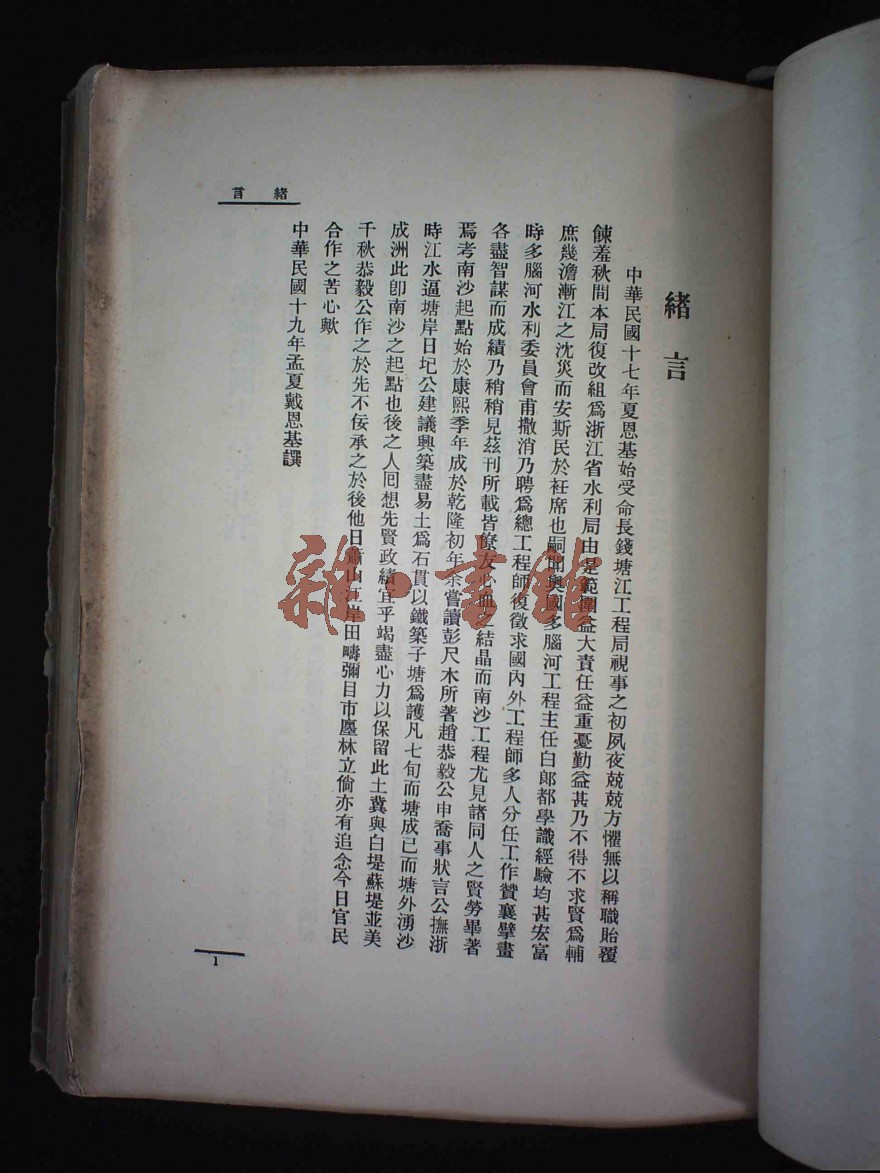 緒言
中華民國十七年夏恩基始受命長錢塘江工程局視事之初夙夜兢兢方懼無以稱職貽覆
餗羞秋間本局復改組爲浙江省水利局由是範圍益大責任益重憂勤益甚乃不得不求賢爲輔
庶幾澹漸江之沈災而安斯民於袵席也嗣聞奧國多腦河工程主任白郎都學識經驗均甚宏富
時多腦河水利委員會甫撤消乃聘爲總工程師復徵求國內外工程師多人分任工作贊襄擘畫
各盡智謀而成績乃稍稍見茲刊所載皆僚友心血之結晶而南沙工程尤見諸同人之賢勞畢著
焉考南沙起點始於康熙季年成於乾隆初年余嘗讀彭尺木所著趙恭毅公申喬事狀言公撫浙
時江水逼塘岸日圮公建議興築盡易土爲石貫以鐵築子塘爲護凡七旬而塘成已而塘外湧沙
成洲此卽南沙之起點也後之人囘想先賢政績宜乎竭盡心力以保留此土冀與白堤蘇堤並美
千秋恭毅公作之於先不佞承之於後他日蕭山江岸田疇彌目市廛林立倘亦有追念今日官民
合作之苦心歟
中華民國十九年孟夏戴恩基譔
緒言
1
雜·書館